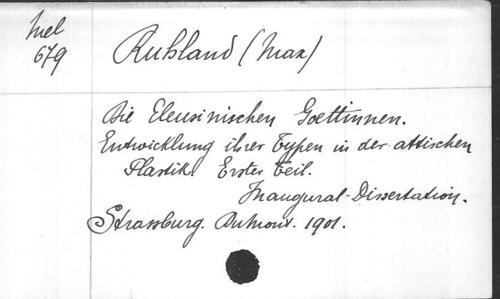 Mel
679
Ruhland (Max)
Die Eleusinischen Goettinnen.
Entwicklung ihrer Typen in der attischen
Plastik. Erster Teil.
Inaugural-Dissertation.
Strassburg. Dumont. 1901.